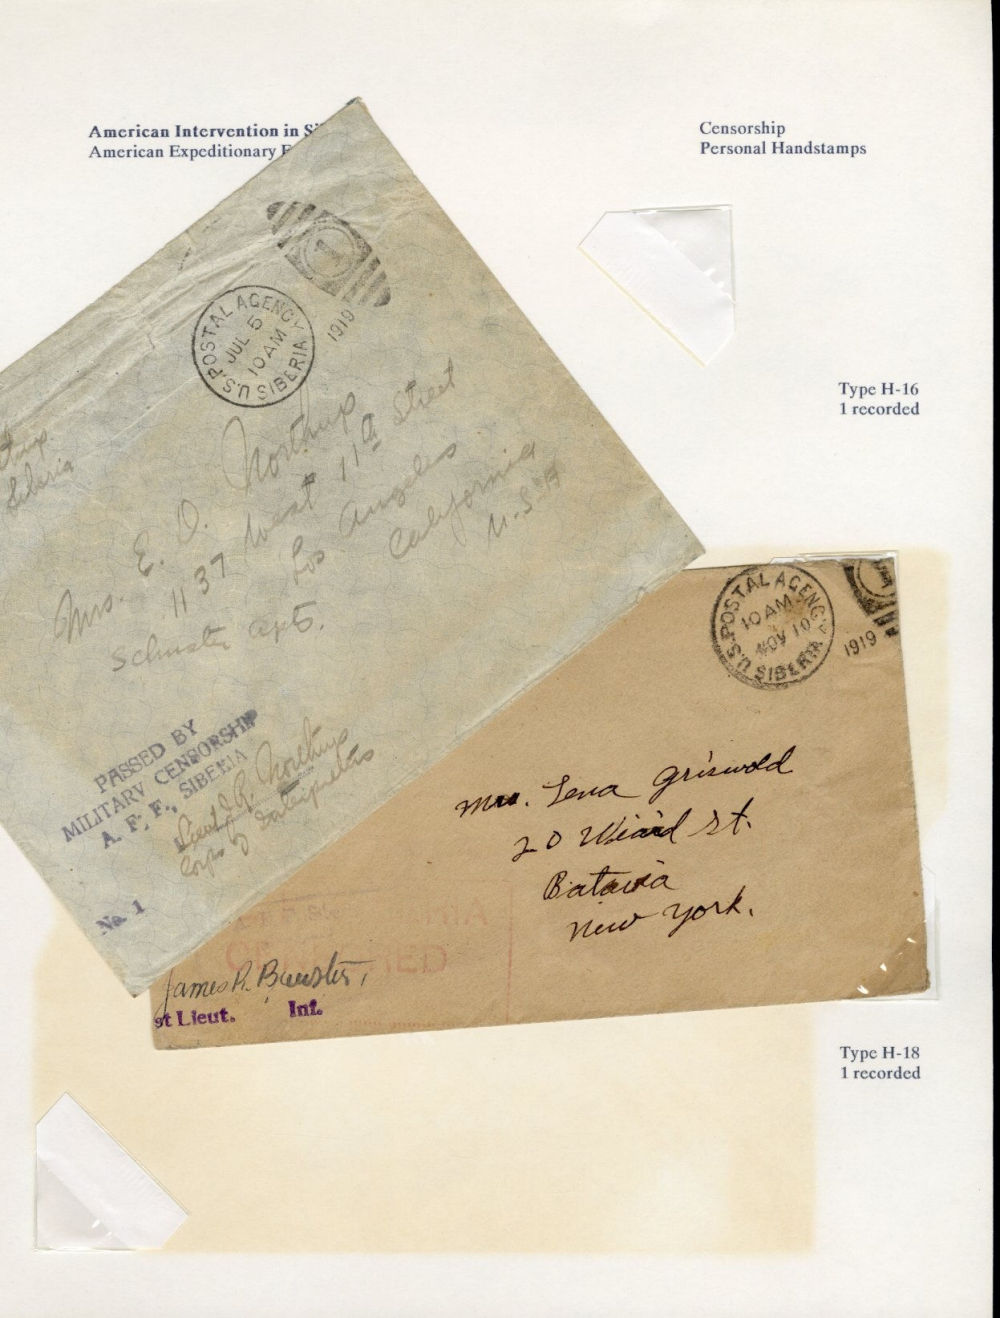 American Intervention in Si
American Expeditionary F
Censorship
Personal Handstamps
Type H-16
1 recorded
U.S. POSTAL AGENCY
JUL 5
10 AM
SIBERIA
1919
1
Siberia
Mrs. E. O. Northup
1137 West 11th Street
Schuster apts. Los Angeles
California
U.S.A
PASSED BY
MILITARY CENSORSHIP
A. F. F., SIBERIA
Lieut J.R. Northup
Corps of Interpreters
No. 1
U.S. POSTAL AGENCY
10 AM
NOV 10
SIBERIA
1919
1
Mrs. Lena Griswold
20 Wiard St.
Batavia
New York.
James R.
st Lieut. Inf.
Type H-18
1 recorded